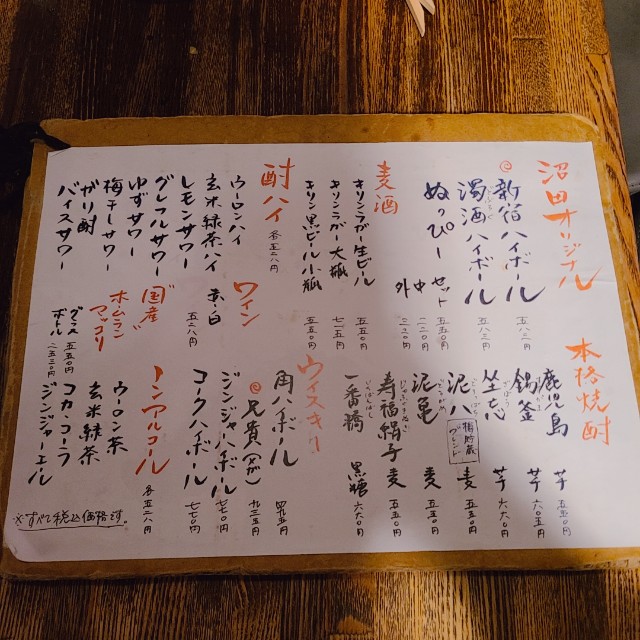 沼田オリジナル
新宿ハイボール 五八三円
濁酒ハイボール 五八三円
ぬっぴー セット 五五〇円
中 二二〇円
外 三三〇円
麦酒
キリンラガー生ビール 五五〇円
キリンラガー大瓶 七一五円
キリン黒ビール小瓶 五五〇円
酎ハイ 各五二八円
ウーロンハイ
玄米緑茶ハイ
レモンサワー
グレフルサワー
ゆずサワー
梅干しサワー
ガリ酎
バイスサワー
ワイン
赤・白 五二八円
国産
ホームラン
マッコリ
グラス 五五〇円
ボトル 二五三〇円
本格焼酎
鹿児島 芋 五五〇円
鍋釜 芋 六〇五円
坐忘 芋 六六〇円
泥八 樽貯蔵ブレンド 麦 五五〇円
泥亀 麦 五五〇円
寿福絹子 麦 五五〇円
一番橋 黒糖 六六〇円
ウィスキー
角ハイボール
兄貴(メガ) 九三五円
ジンジャーハイボール 七七〇円
コークハイボール 七七〇円
ノンアルコール 各五二八円
ウーロン茶
玄米緑茶
コカ・コーラ
ジンジャーエール
※すべて税込価格です。